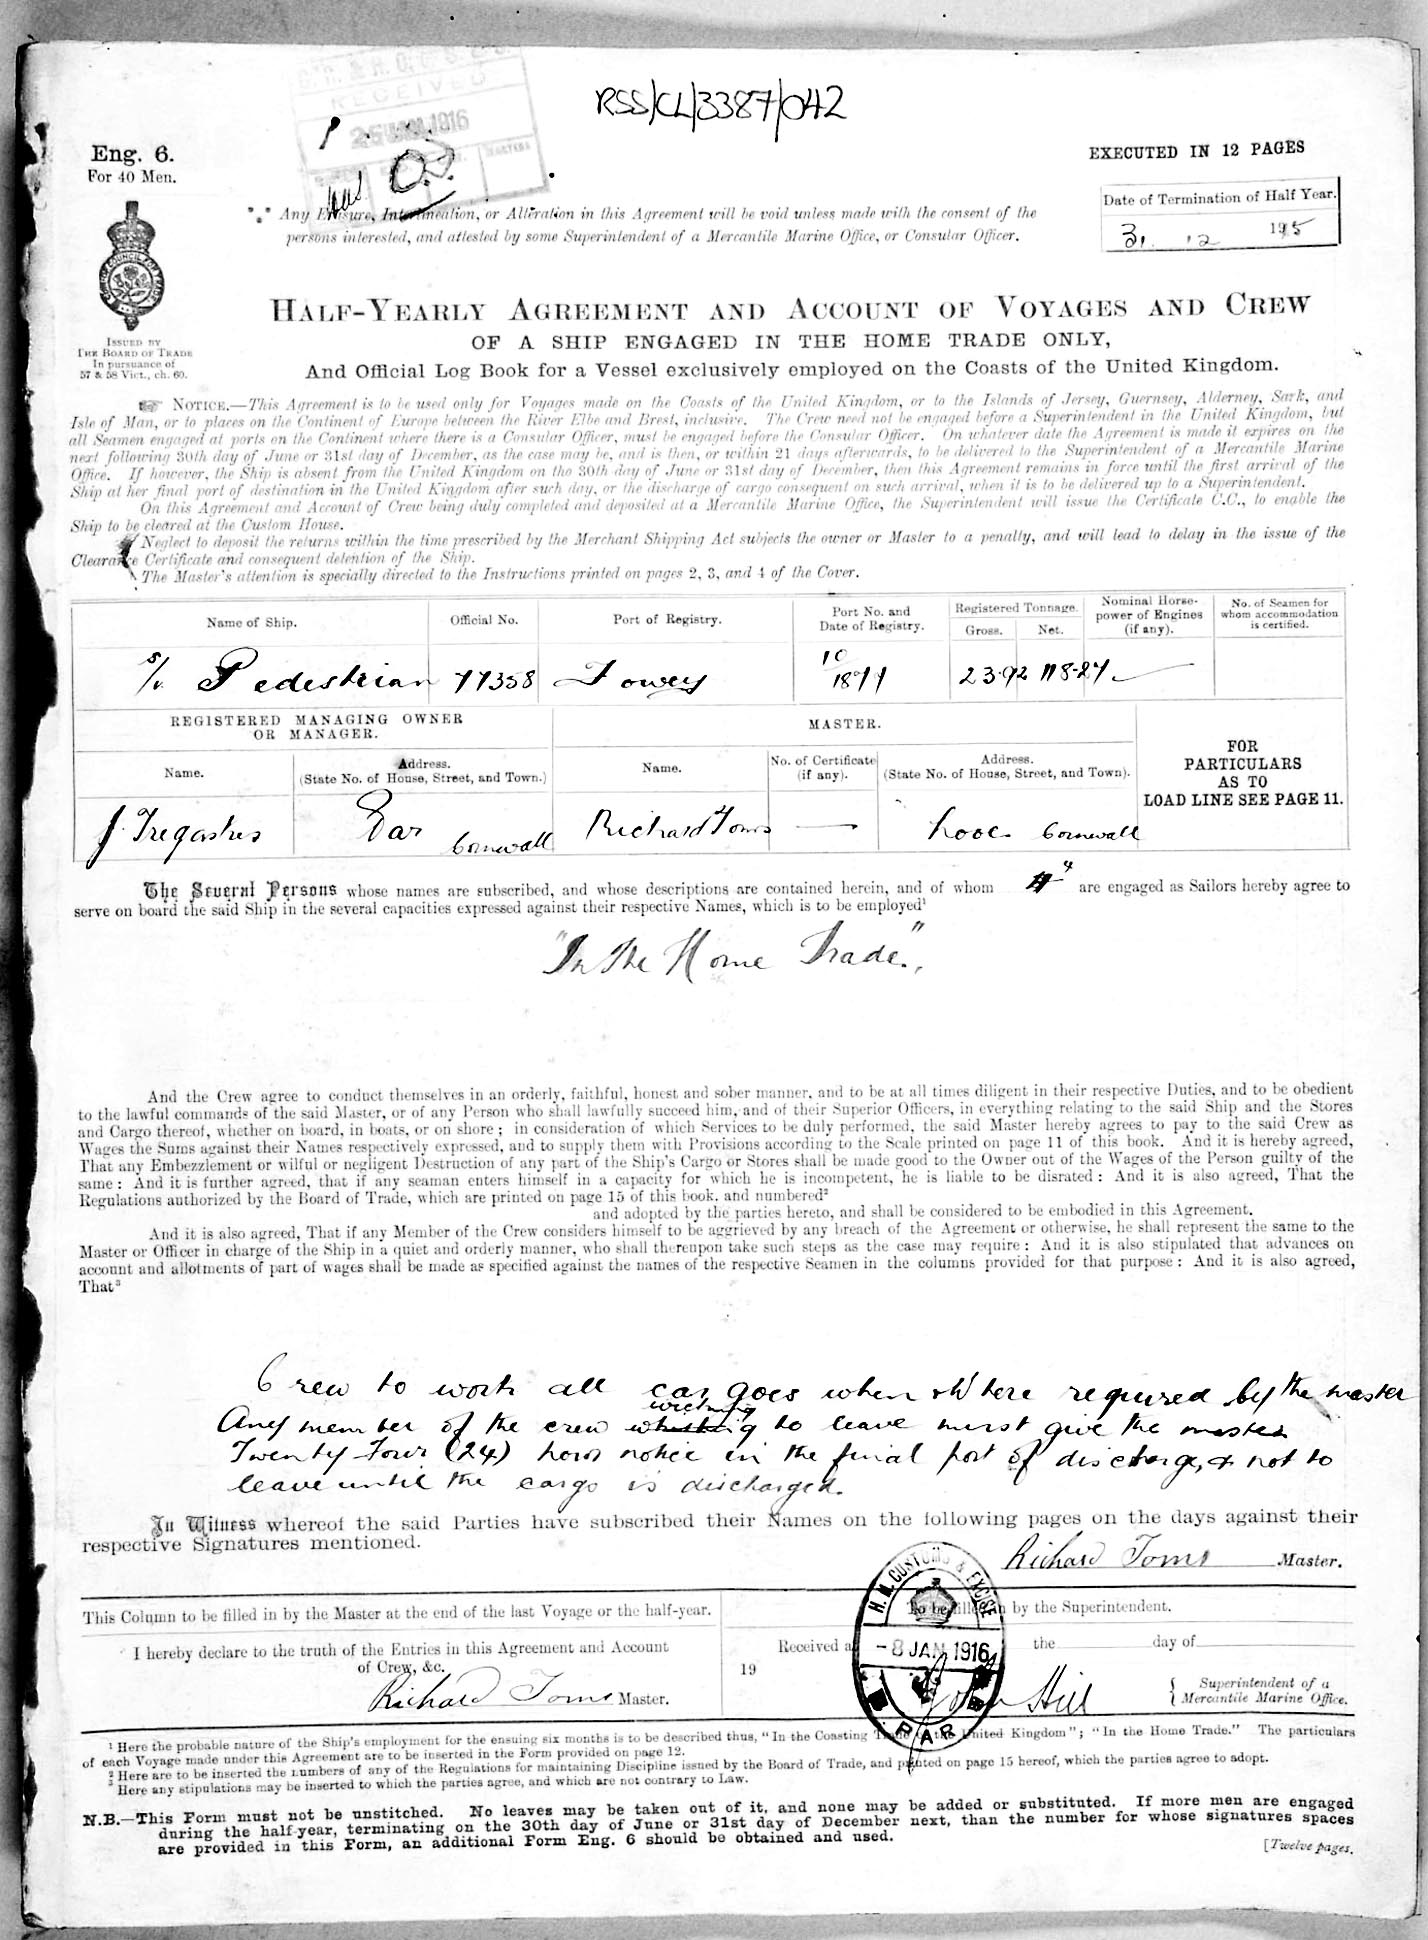 RSS/CL/3387/042
RECEIVED
1916
Eng. 6.
For 40 Men.
EXECUTED IN 12 PAGES
Date of Termination of Half Year.
31. 12 1915
Any Erasure, Interlineation, or Alteration in this Agreement will be void unless made with the consent of the
persons interested, and attested by some Superintendent of a Mercantile Marine Office, or Consular Officer.
ISSUED BY
THE BOARD OF TRADE
In pursuance of
57 & 58 Vict., ch. 60.
HALF-YEARLY AGREEMENT AND ACCOUNT OF VOYAGES AND CREW
OF A SHIP ENGAGED IN THE HOME TRADE ONLY,
And Official Log Book for a Vessel exclusively employed on the Coasts of the United Kingdom.
NOTICE.—This Agreement is to be used only for Voyages made on the Coasts of the United Kingdom, or to the Islands of Jersey, Guernsey, Alderney, Sark, and
Isle of Man, or to places on the Continent of Europe between the River Elbe and Brest, inclusive. The Crew need not be engaged before a Superintendent in the United Kingdom, but
all Seamen engaged at ports on the Continent where there is a Consular Officer, must be engaged before the Consular Officer. On whatever date the Agreement is made it expires on the
next following 30th day of June or 31st day of December, as the case may be, and is then, or within 21 days afterwards, to be delivered to the Superintendent of a Mercantile Marine
Office. If however, the Ship is absent from the United Kingdom on the 30th day of June or 31st day of December, then this Agreement remains in force until the first arrival of the
Ship at her final port of destination in the United Kingdom after such day, or the discharge of cargo consequent on such arrival, when it is to be delivered up to a Superintendent.
On this Agreement and Account of Crew being duly completed and deposited at a Mercantile Marine Office, the Superintendent will issue the Certificate C.C., to enable the
Ship to be cleared at the Custom House.
Neglect to deposit the returns within the time prescribed by the Merchant Shipping Act subjects the owner or Master to a penalty, and will lead to delay in the issue of the
Clearance Certificate and consequent detention of the Ship.
The Master's attention is specially directed to the Instructions printed on pages 2, 3, and 4 of the Cover.
Name of Ship. Official No. Port of Registry. Port No. and Date of Registry. Registered Tonnage. Gross. Net. Nominal Horse-power of Engines (if any). No. of Seamen for whom accommodation is certified.
Pedestrian 77358 Fowey 10 1877
REGISTERED MANAGING OWNER OR MANAGER. MASTER.
Name. Address. (State No. of House, Street, and Town.) Name. No. of Certificate (if any). Address. (State No. of House, Street, and Town).
FOR
PARTICULARS
AS TO
LOAD LINE SEE PAGE 11.
Par Cornwall Richard Toms — Looe Cornwall
The Several Persons whose names are subscribed, and whose descriptions are contained herein, and of whom 4 are engaged as Sailors hereby agree to
serve on board the said Ship in the several capacities expressed against their respective Names, which is to be employed¹
"In the Home Trade."
And the Crew agree to conduct themselves in an orderly, faithful, honest and sober manner, and to be at all times diligent in their respective Duties, and to be obedient
to the lawful commands of the said Master, or of any Person who shall lawfully succeed him, and of their Superior Officers, in everything relating to the said Ship and the Stores
and Cargo thereof, whether on board, in boats, or on shore; in consideration of which Services to be duly performed, the said Master hereby agrees to pay to the said Crew as
Wages the Sums against their Names respectively expressed, and to supply them with Provisions according to the Scale printed on page 11 of this book. And it is hereby agreed,
That any Embezzlement or wilful or negligent Destruction of any part of the Ship's Cargo or Stores shall be made good to the Owner out of the Wages of the Person guilty of the
same: And it is further agreed, that if any seaman enters himself in a capacity for which he is incompetent, he is liable to be disrated: And it is also agreed, That the
Regulations authorized by the Board of Trade, which are printed on page 15 of this book, and numbered²
and adopted by the parties hereto, and shall be considered to be embodied in this Agreement.
And it is also agreed, That if any Member of the Crew considers himself to be aggrieved by any breach of the Agreement or otherwise, he shall represent the same to the
Master or Officer in charge of the Ship in a quiet and orderly manner, who shall thereupon take such steps as the case may require: And it is also stipulated that advances on
account and allotments of part of wages shall be made as specified against the names of the respective Seamen in the columns provided for that purpose: And it is also agreed,
That³
Crew to work all cargoes when & where required by the master
Any member of the crew wishing to leave must give the master
Twenty Four (24) hours notice in the final port of discharge, & not to
leave until the cargo is discharged.
In Witness whereof the said Parties have subscribed their Names on the following pages on the days against their
respective Signatures mentioned.
Richard Toms Master.
This Column to be filled in by the Master at the end of the last Voyage or the half-year.
To be filled in by the Superintendent.
I hereby declare to the truth of the Entries in this Agreement and Account
of Crew, &c.
Richard Toms Master.
Received at the day of
19
John Hill
Superintendent of a
Mercantile Marine Office.
H.M. CUSTOMS & EXCISE
-8 JAN 1916
PAR
¹ Here the probable nature of the Ship's employment for the ensuing six months is to be described thus, "In the Coasting Trade of the United Kingdom"; "In the Home Trade." The particulars
of each Voyage made under this Agreement are to be inserted in the Form provided on page 12.
² Here are to be inserted the numbers of any of the Regulations for maintaining Discipline issued by the Board of Trade, and printed on page 15 hereof, which the parties agree to adopt.
³ Here any stipulations may be inserted to which the parties agree, and which are not contrary to Law.
N.B.—This Form must not be unstitched. No leaves may be taken out of it, and none may be added or substituted. If more men are engaged
during the half-year, terminating on the 30th day of June or 31st day of December next, than the number for whose signatures spaces
are provided in this Form, an additional Form Eng. 6 should be obtained and used.
[Twelve pages.